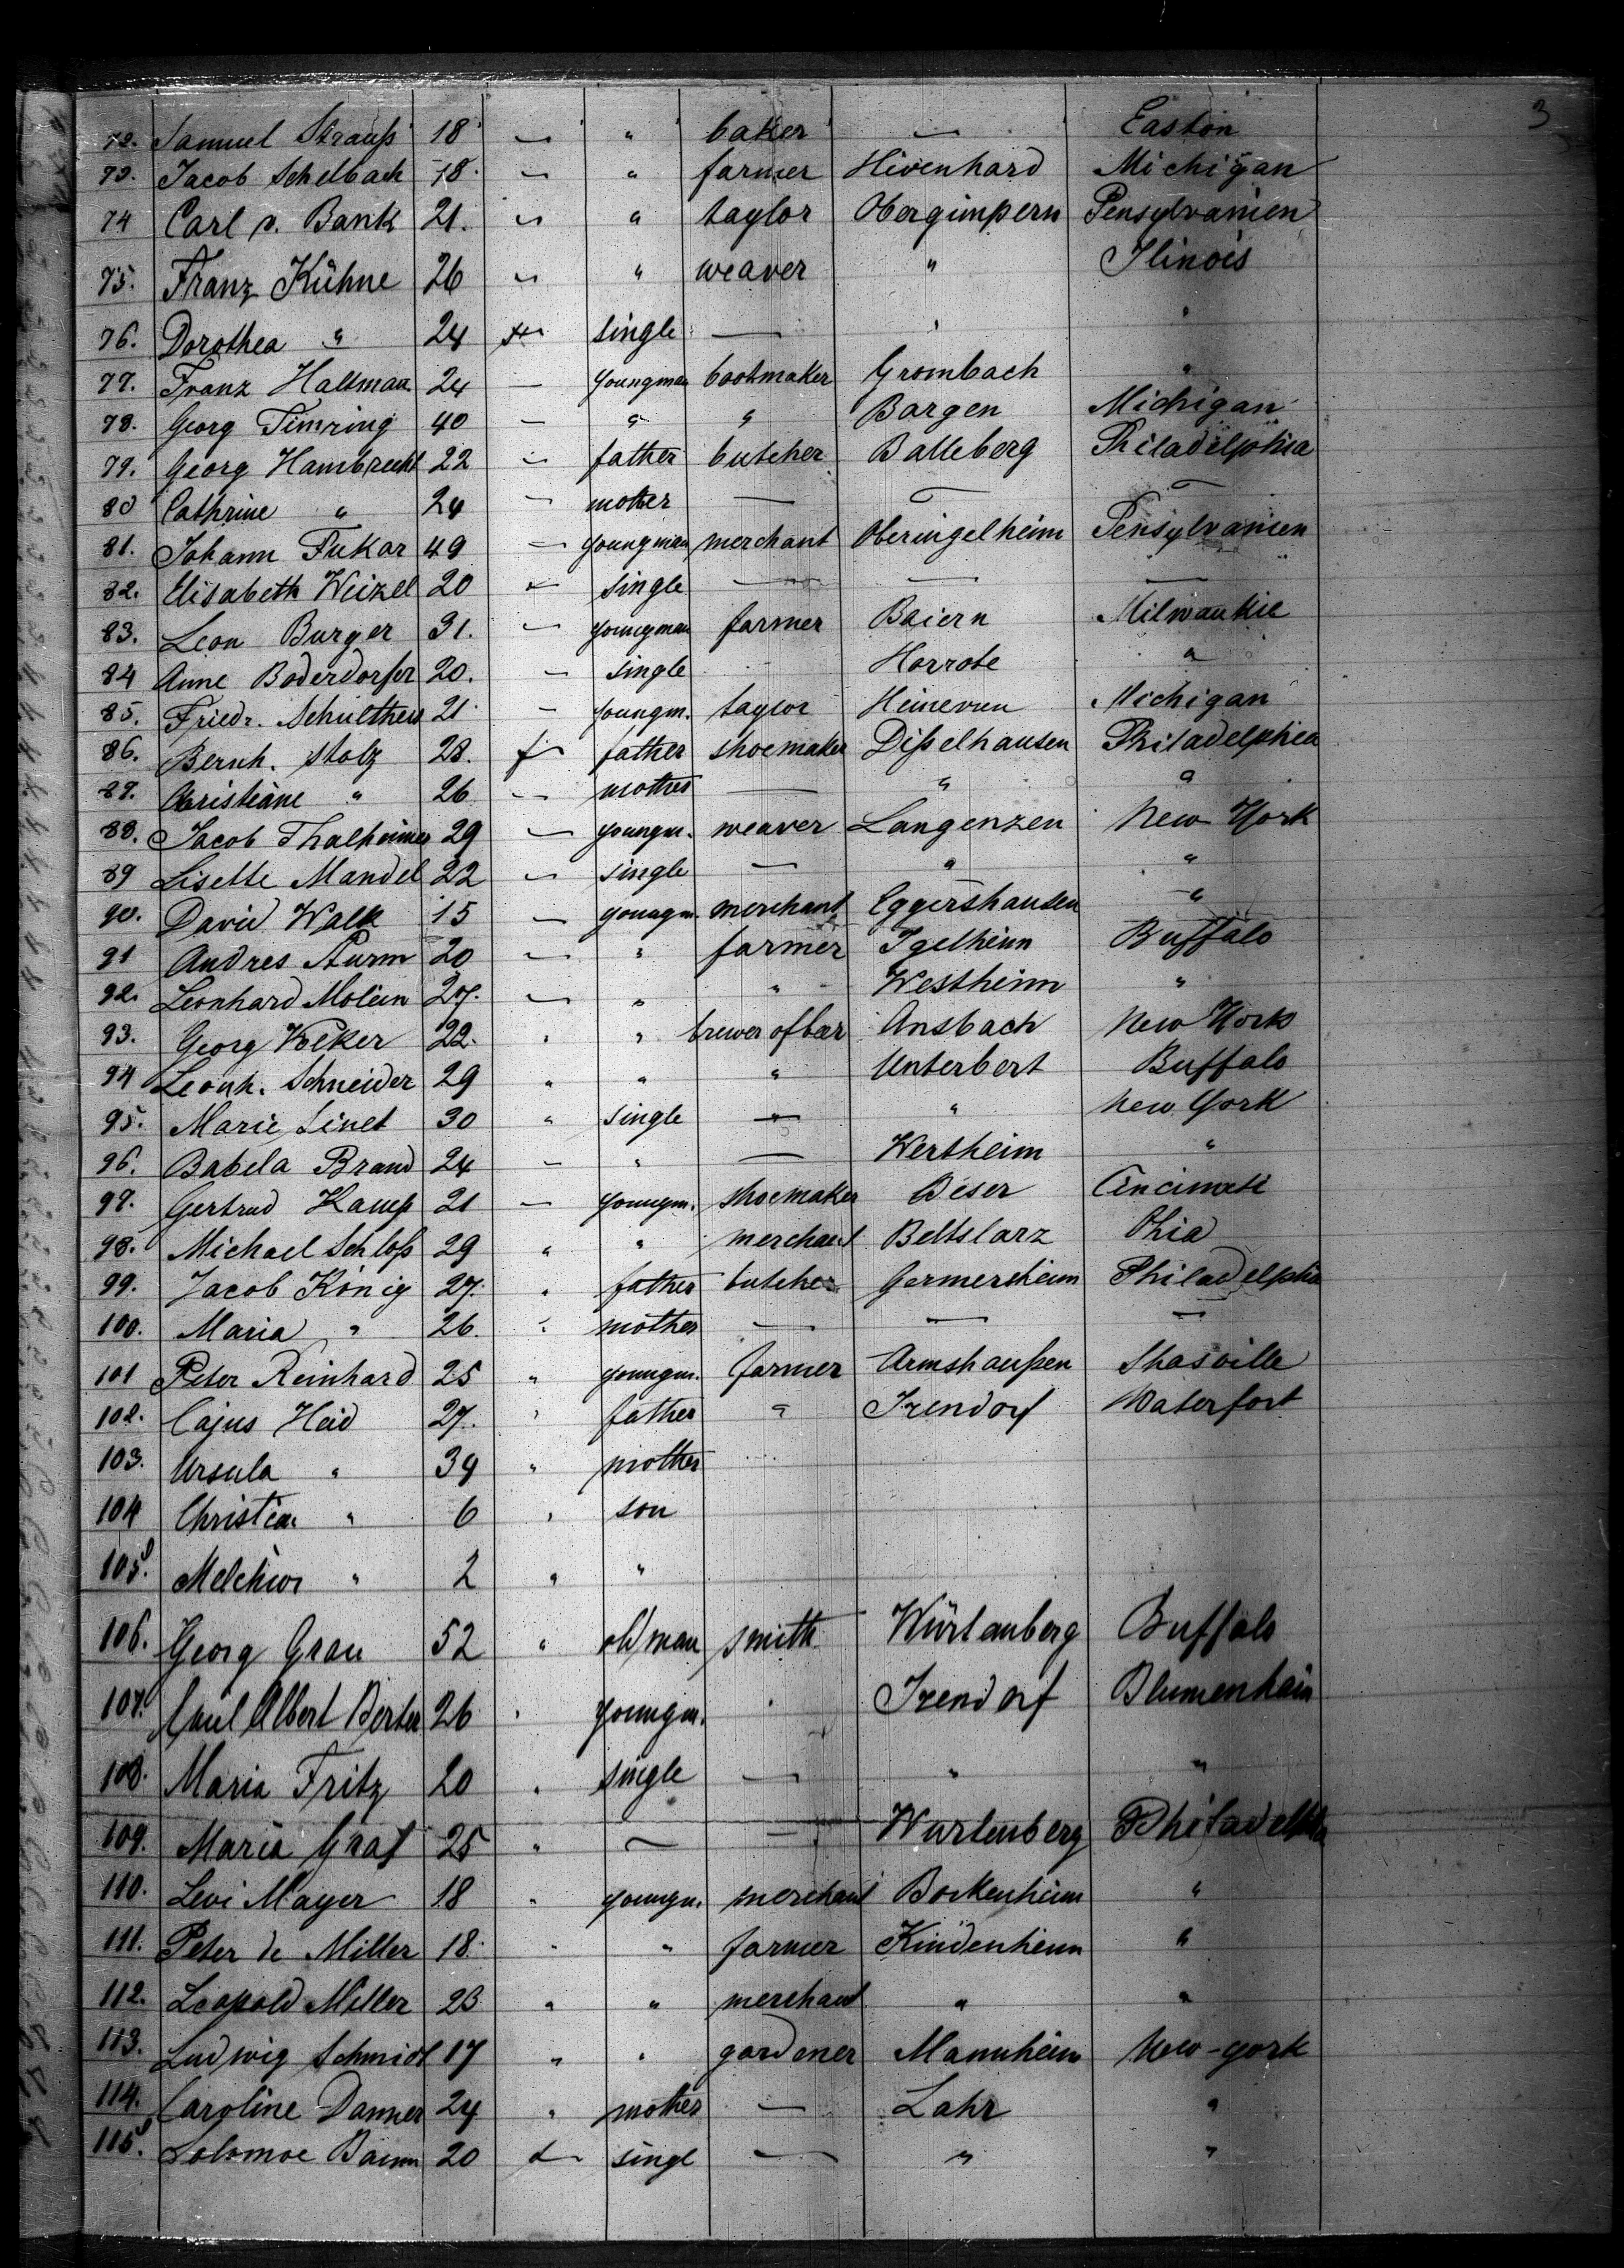 3
72. Samuel Strauß 18 — " baker — Easton
73. Jacob Schelbach 18 — " farmer Hivenhard Michigan
74 Carl v. Bank 21. — " taylor Obergimpern Pensylvanien
75. Franz Kühne 26 — " weaver " Ilinois
76. Dorothea " 24 single — " "
77. Franz Haltman 24 — youngman bootmaker Grombach "
78. Georg Timring 40 — " " Bargen Michigan
79. Georg Hambrecht 22 — father butcher Balleberg Philadelphia
80 Cathrine " 24 — mother — — —
81. Johann Fukar 49 — youngman merchant Oberingelheim Pensylvanien
82. Elisabeth Weizel 20 — single — — —
83. Leon Burger 31. — youngman farmer Baiern Milwaukie
84 Anne Boderdorfer 20. — single Horrote "
85. Friedr. Schultheis 21 — youngm. taylor Michigan
86. Bernh. Stolz 28. father shoemaker Dißelhausen Philadelphia
87. Christiane " 26 — mother — " "
88. Jacob Thalheimer 29 — youngm. weaver Langenzen New York
89 Lisette Mandel 22 — single — " "
90. David Walk 15 — youngm. merchant Eggershausen "
91 Andres Sturm 20 — " farmer Igelheim Buffalo
92. Leonhard Molein 27. — " " Westheim "
93. Georg Völker 22. " " brewer of beer Ansbach New York
94 Leonh. Schneider 29 " " " Unterbert Buffalo
95. Marie Linet 30 " single — " New York
96. Babela Brand 24 — " — Wertheim "
97. Gertrud Kamp 21 — youngm. shoemaker Beser Cincinati
98. Michael Schloß 29 " " merchant Beltslarz Ohia
99. Jacob König 27. " father butcher Germersheim Philadelphia
100. Maria " 26. " mother — — —
101 Peter Reinhard 25 " youngm. farmer Armshaußen Shasville
102. Cajus Heid 27. " father " Irendorf Waterfort
103. Ursula " 39 " mother
104 Christian " 6 " son
105. Melchior " 2 " "
106. Georg Grau 52 " old man smith Würtanberg Buffalo
107. Albert 26 " youngm. " Irendorf Blumenhain
108. Maria Fritz 20 " single — " "
109. Maria Graf 25 " — — Wurtenberg Philadelphia
110. Levi Mayer 18 " youngm. merchant Bockenheim "
111. Peter de Miller 18. " " farmer Kindenheim "
112. Leopold Miller 23 " " merchant " "
113. Ludwig Schmidt 17 " " gardener Mannheim New-york
114. Caroline Danner 24 " mother — Lahr "
115. Solomoe Baum 20 singl — " "